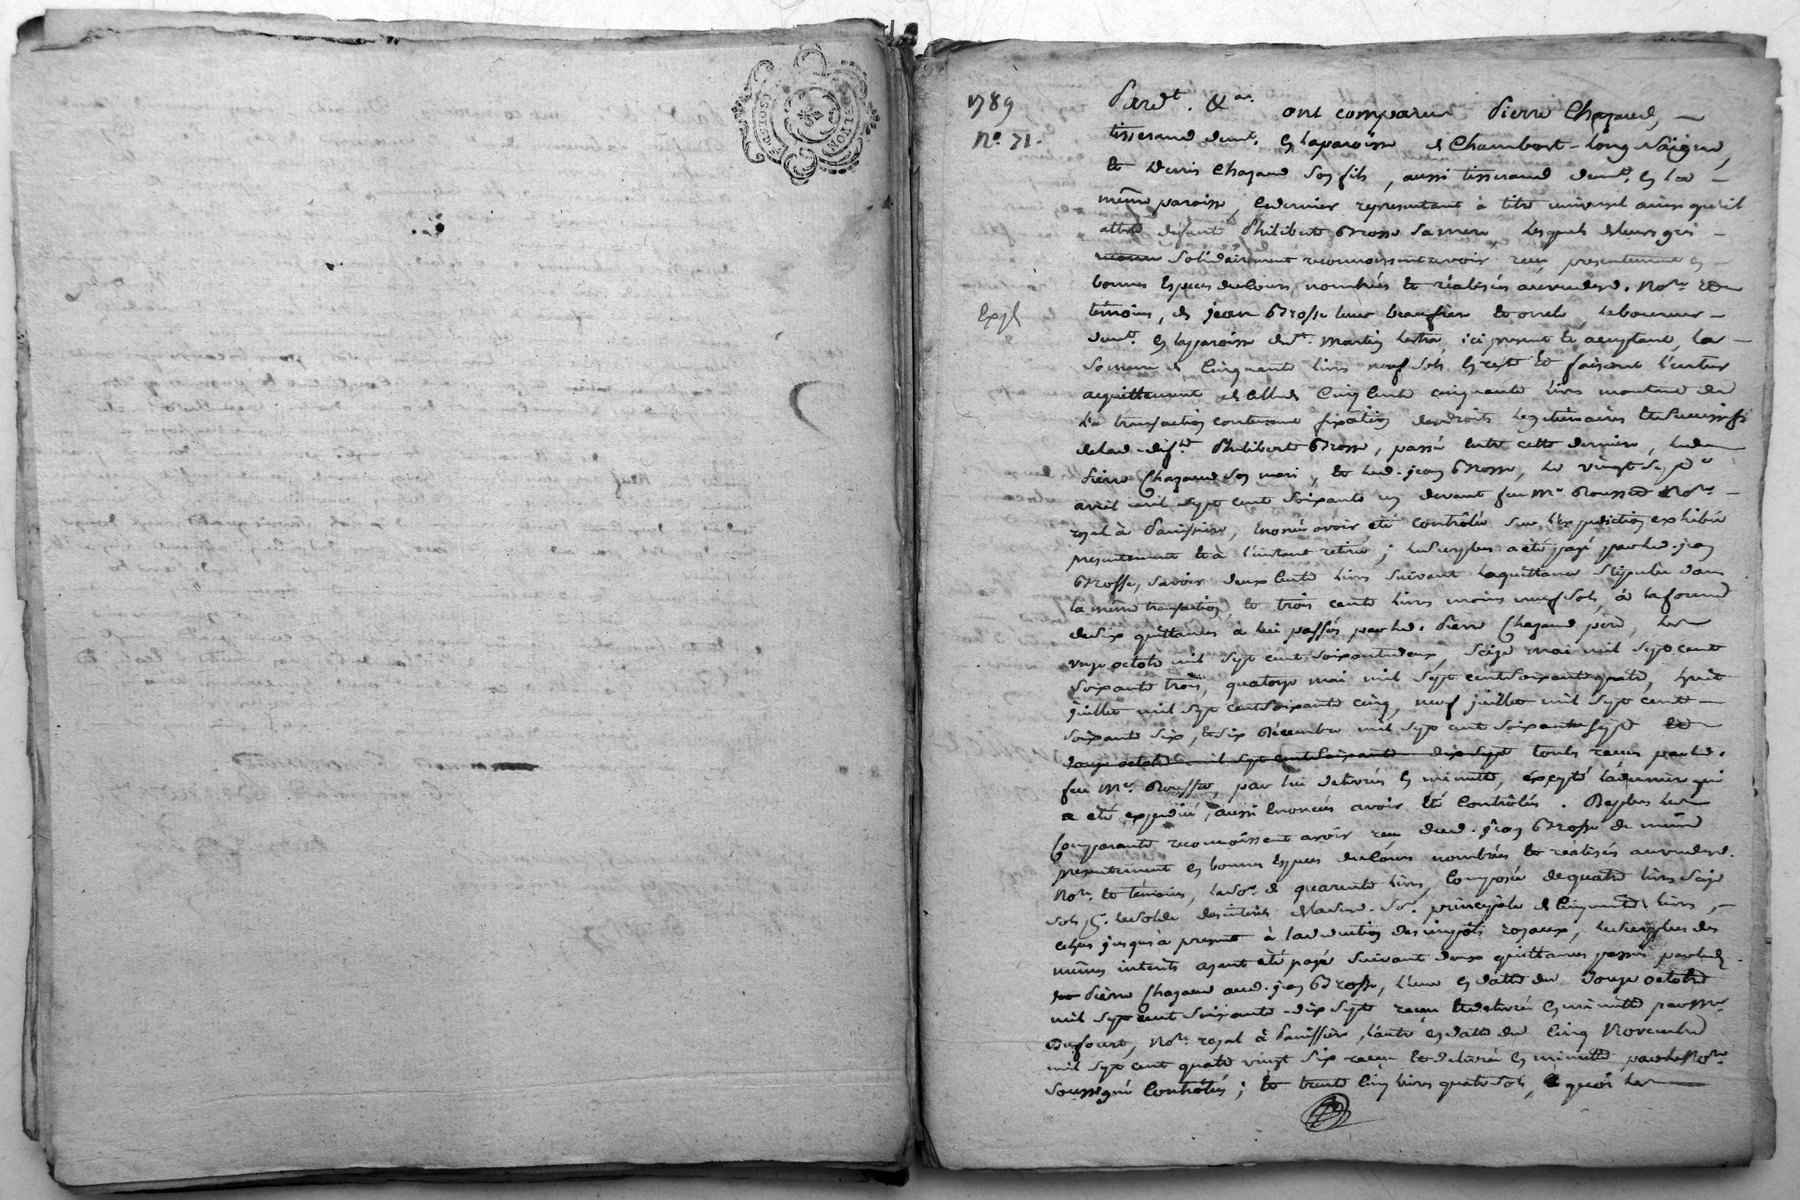 GEN. DE LYON
1789
N° 71.
Expé
Pardt. &a. ont comparu Pierre Chazaud,
tisserand demt. en la paroisse de Chambost-Longessaigne,
et Denis Chazaud son fils, aussi tisserand demt. en la
même paroisse, ce dernier représentant à titre universel ainsi qu'il
atteste défunte Philiberte Brosse sa mere lesquels de leurs gré
solidairement reconnoissent avoir reçu presentement en
bonnes Especes de Cours nombrées et réalisées au vu desd. Nore. et
témoins, de jean Brosse leur beaufrere et oncle
demt. en la paroisse de St. Martin Lestra ici present et acceptant, la
somme de Cinquante livres neuf sols en reste et faisant l'entier
acquittement de celle de Cinq Cents cinquante livres montant de
la transaction contenant fixation des droits légitimaires et successifs
de lad. défte. Philiberte Brosse, passée entre cette derniere, led.
Pierre Chazaud son mari, et led. jean Brosse, le vingt sept
avril mil sept cent soixante un devant feu Me. Rousset Nore.
royal à Panissiere, énoncée avoir eté contrôlée sur l'expédition exhibée
presentement et à l'instant retirée; le surplus a eté payé par led. jean
Brosse, savoir deux Cents livres suivant la quittance stipulée dans
la même transaction, et trois cents livres moins neuf sols, à la forme
de six quittances à lui passées par led. Pierre Chazaud pere, les
onze octobre mil sept cent soixante deux, seize mai mil sept cent
soixante trois, quatorze mai mil sept cent soixante quatre, huit
juillet mil sept cent soixante cinq, neuf juillet mil sept cent
soixante six, et six Décembre mil sept cent soixante sept
douze octobre mil sept cent soixante dix sept toutes reçues par led.
feu Me. Rousset, par lui délivrées en minute, excepté la derniere qui
a eté expédiée, aussi énoncées avoir été Contrôlées. De plus les
Comparants reconnoissent avoir reçu dud. jean Brosse de même
presentement en bonnes Especes de Cours nombrées et réalisées au vu desd.
Nore. et témoins, la so. de quarante livres, Composée de quatre livres seize
sols pr. le solde des intérêts de la susd. So. principale de Cinquante livres,
échus jusqu'à present à la déduction des impôts royaux, le surplus des
mêmes interêts ayant été payé suivant deux quittances passées par led.
Pierre Chazaud aud. jean Brosse, l'une en datte du Douze octobre
mil sept cent soixante-dix sept reçue et délivrée en minute par Me.
Dufourt, Nore. royal à Panissiere, l'autre en datte du Cinq Novembre
mil sept cent quatre vingt six reçue et délivrée en minute par le Nore.
Soussigné Contrôlées; et trente Cinq livres quatre sols, à quoi les